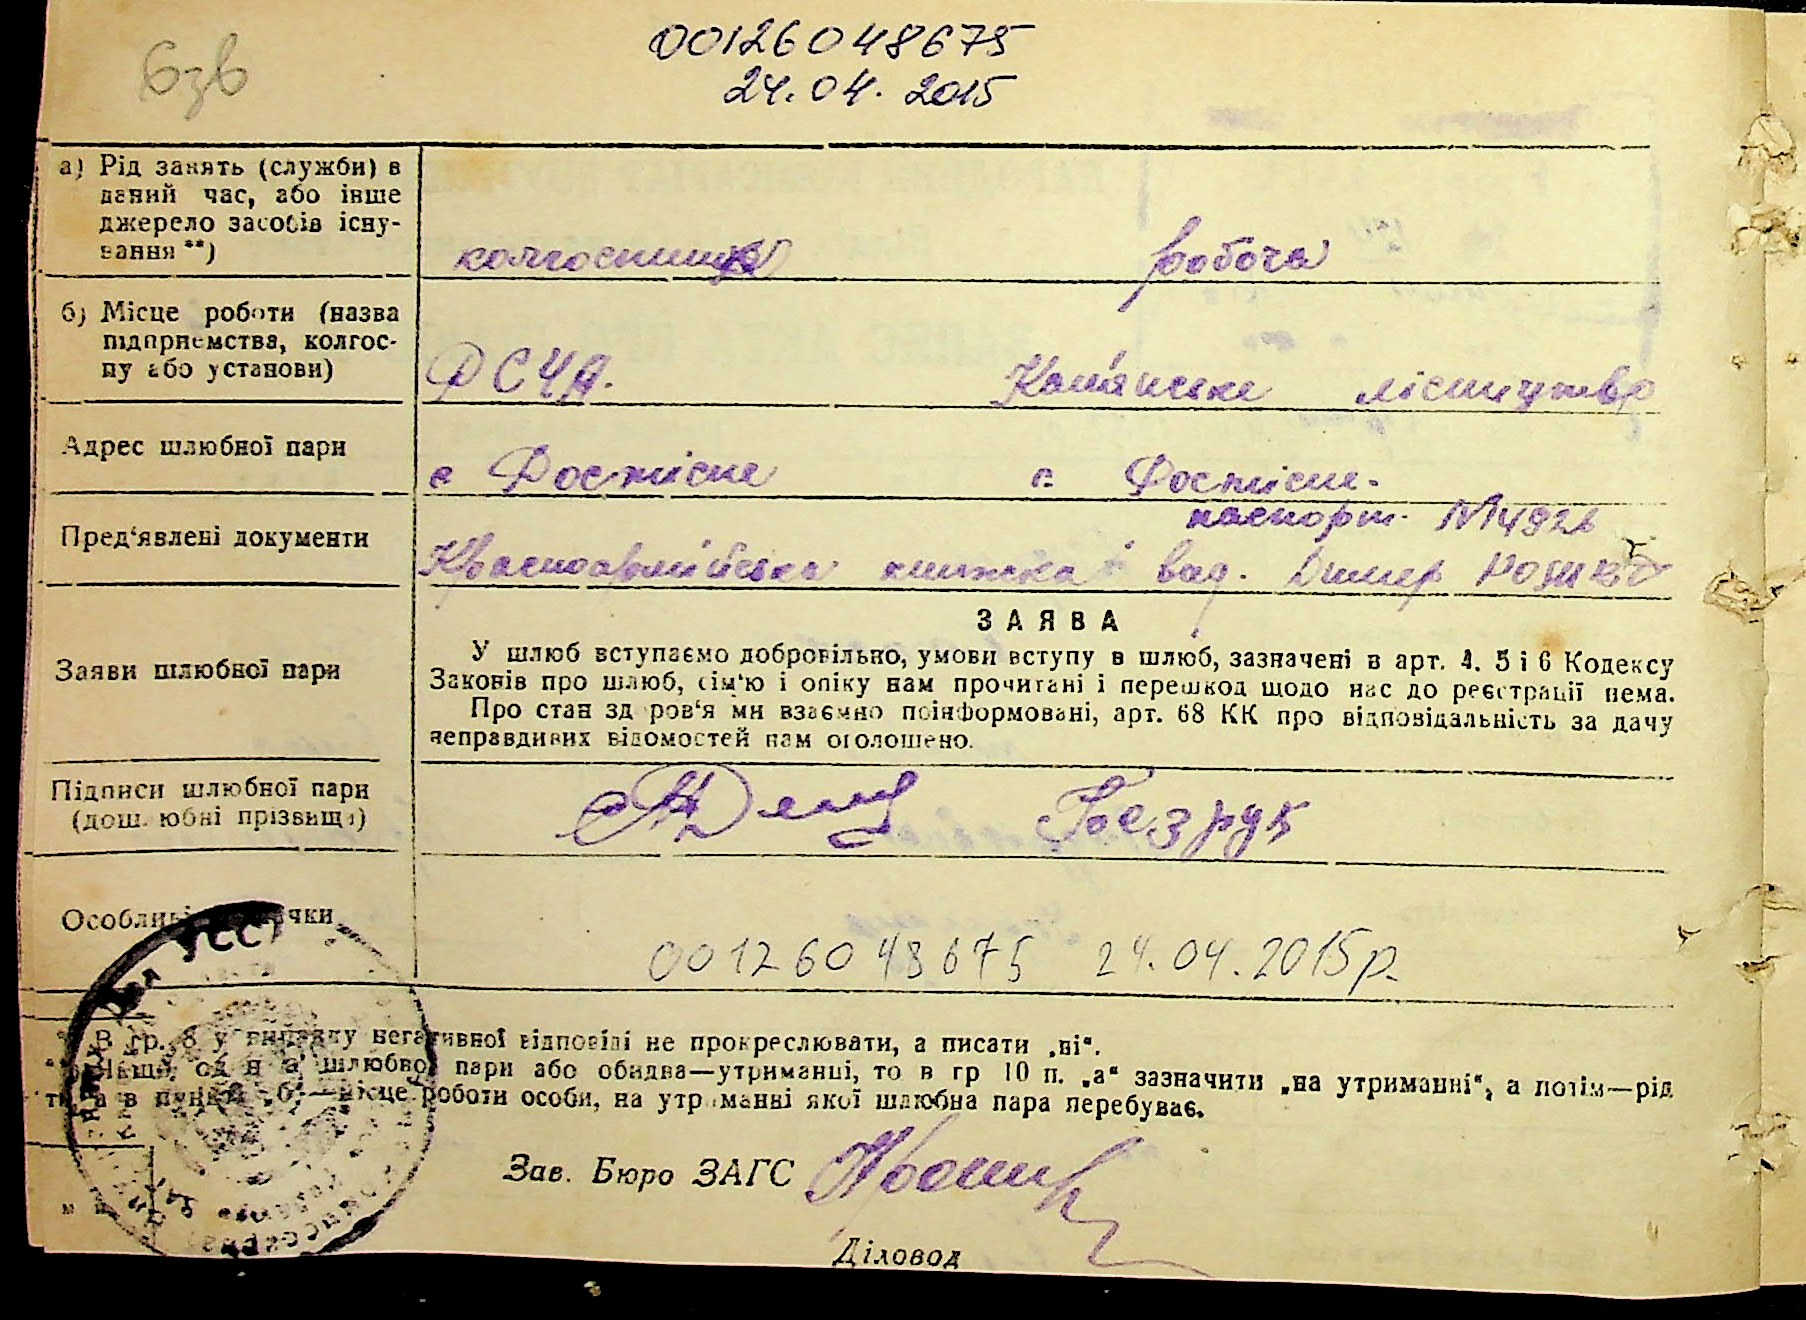 6зв
00126048675
24.04.2015
а) Рід занять (служби) в
даний час, або інше
джерело засобів існу-
вання **)
колгоспниця робоча
б) Місце роботи (назва
підприємства, колгос-
пу або установи)
РСЧА. Кам'янське лісництво
Адрес шлюбної пари
с с.
паспорт
Пред'явлені документи
Красноармійська книжка вид. Димер
ЗАЯВА
Заяви шлюбної пари
У шлюб вступаємо добровільно, умови вступу в шлюб, зазначені в арт. 4. 5 і 6 Кодексу
Законів про шлюб, сім'ю і опіку нам прочитані і перешкод щодо нас до реєстрації нема.
Про стан здоров'я ми взаємно поінформовані, арт. 68 КК про відповідальність за дачу
неправдивих відомостей нам оголошено.
Підписи шлюбної пари
(дошлюбні прізвища)
Безрук
Особливі
00126048675 24.04.2015р.
В гр. 8 у випадку негативної відповіді не прокреслювати, а писати „ні“.
Якщо один з шлюбної пари або обидва—утриманці, то в гр 10 п. „а“ зазначити „на утриманні“, а потім—рід
а в пункті „б“—місце роботи особи, на утриманні якої шлюбна пара перебуває.
Зав. Бюро ЗАГС
Діловод